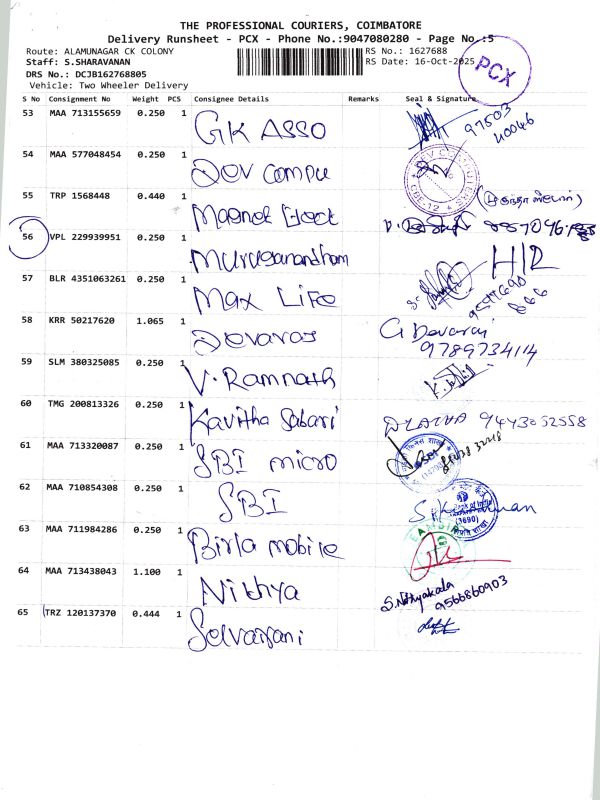 THE PROFESSIONAL COURIERS, COIMBATORE
Delivery Runsheet - PCX - Phone No.:9047080280 - Page No.:5
Route: ALAMUNAGAR CK COLONY
RS No.: 1627688
Staff: S.SHARAVANAN
RS Date: 16-Oct-2025
DRS No.: DCJB162768805
Vehicle: Two Wheeler Delivery
PCX
S No Consignment No Weight PCS Consignee Details Remarks Seal & Signature
53 MAA 713155659 0.250 1 GK ASSO 97503 40046
54 MAA 577048454 0.250 1 Dev Compu
55 TRP 1568448 0.440 1 Magnet Elect
56 VPL 229939951 0.250 1 Muruganandham H/R
57 BLR 4351063261 0.250 1 Max Life
58 KRR 50217620 1.065 1 Devaraj G Devaraj
9789734114
59 SLM 380325085 0.250 1 V. Ramnath
60 TMG 200813326 0.250 1 Kavitha Sabari 9443052558
61 MAA 713320087 0.250 1 SBI micro
62 MAA 710854308 0.250 1 SBI
Bank of India
(1690)
63 MAA 711984286 0.250 1 Birla mobile
64 MAA 713438043 1.100 1 Nithya S.Nithyakala
9566860903
65 TRZ 120137370 0.444 1 Selvarani